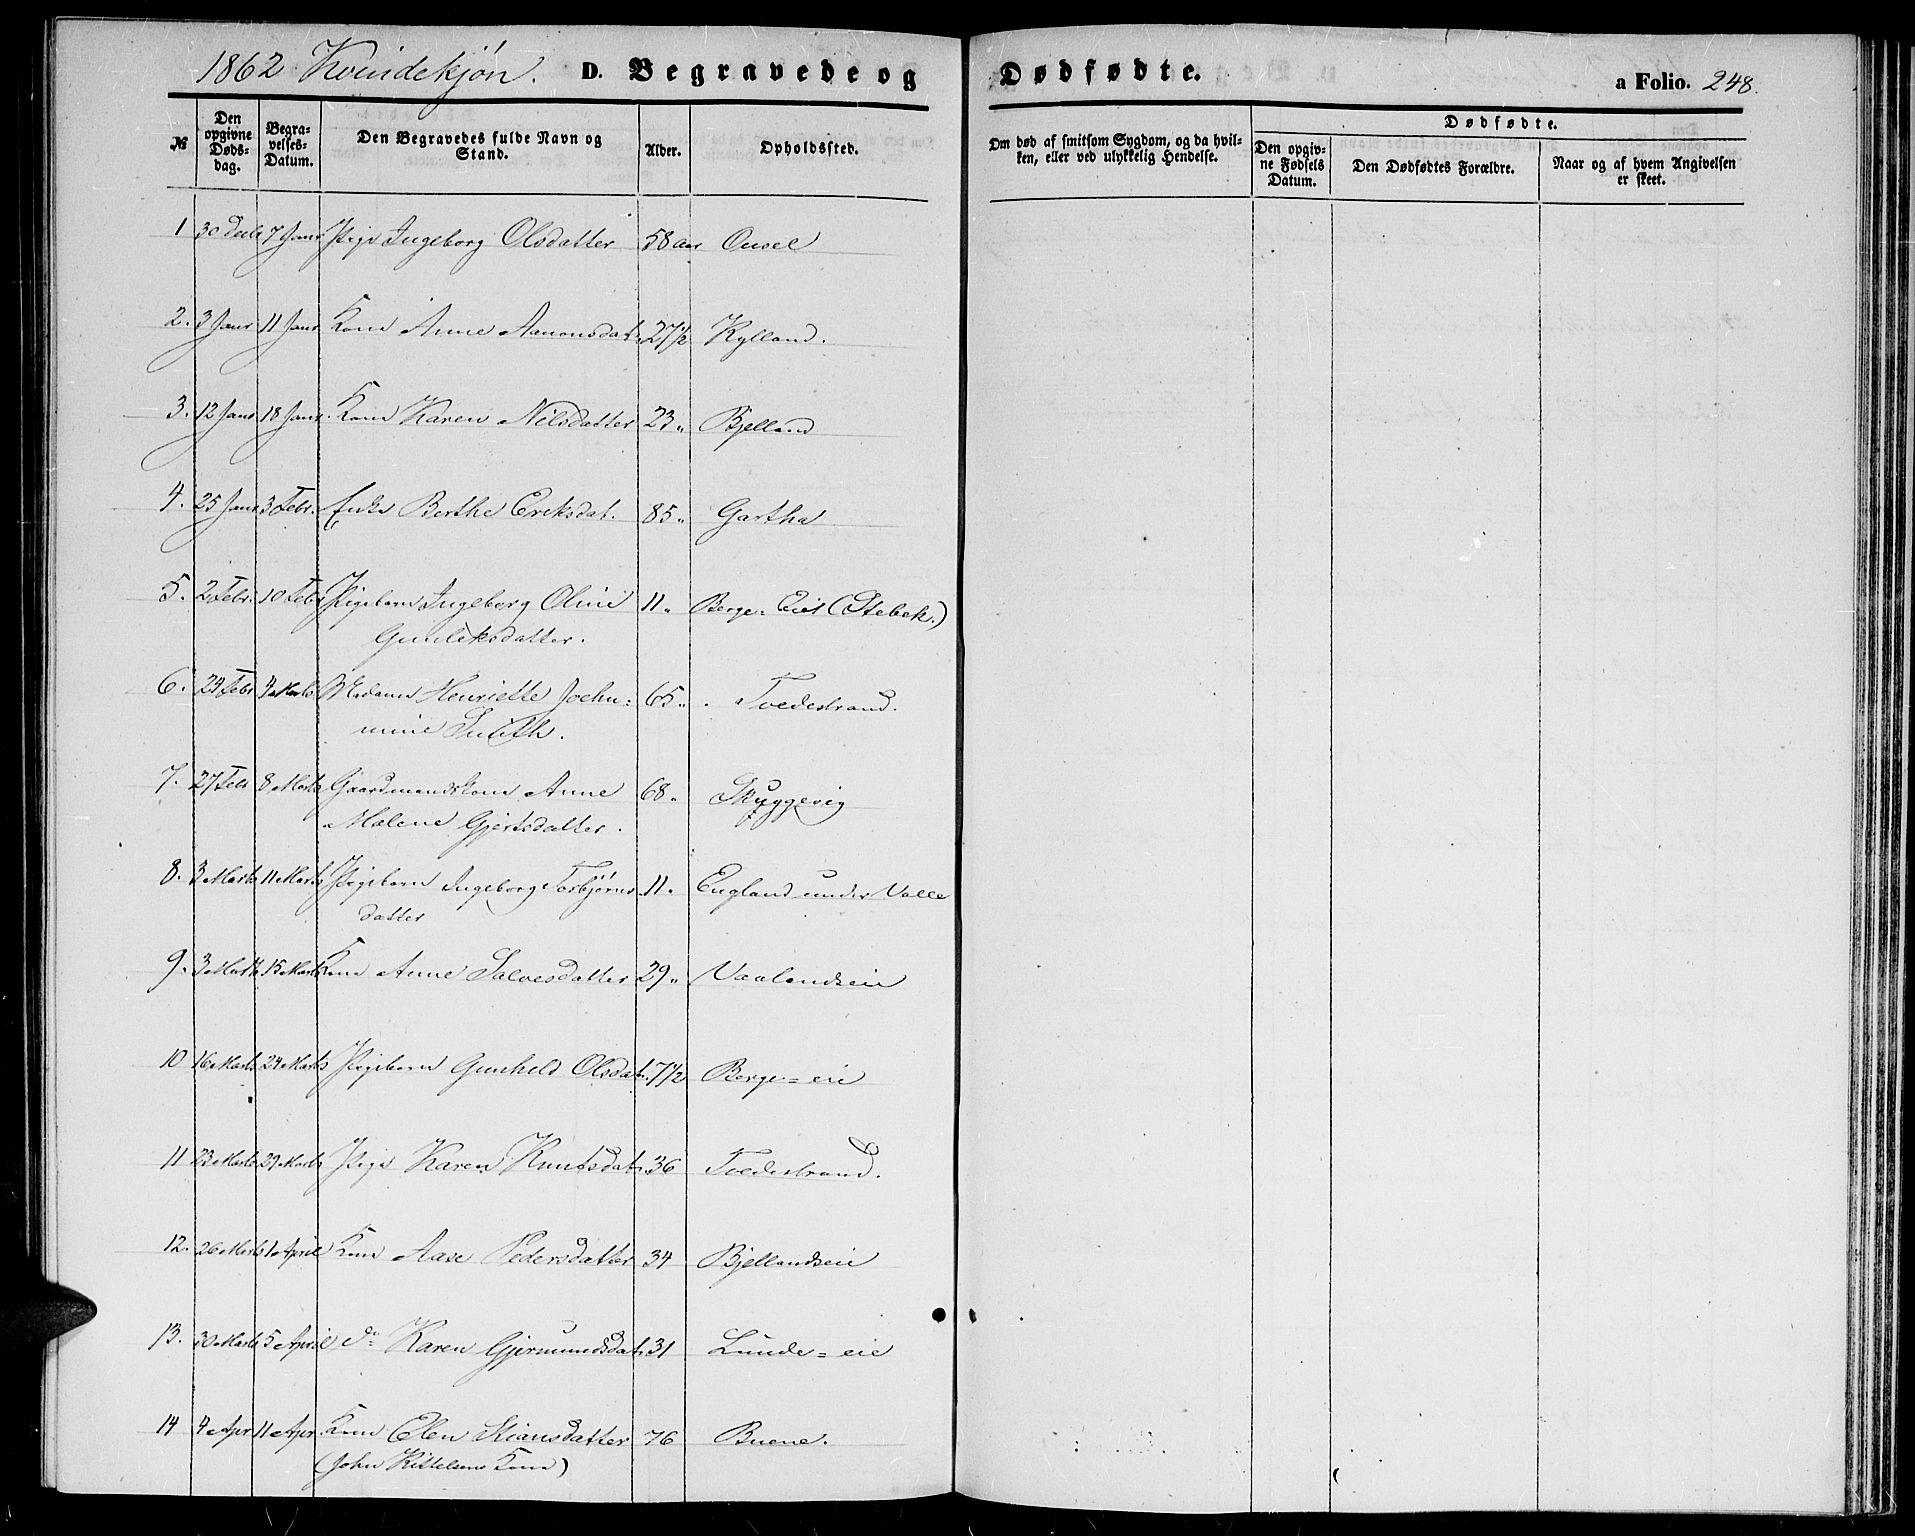 1862 Kvindekjøn. D. Begravede og Dødfødte. a Folio. 248.
№ Den opgivne Døds-dag. Begra-velses-Datum. Den Begravedes fulde Navn og Stand. Alder. Opholdssted. Om død af smitsom Sygdom, og da hvil-ken, eller ved ulykkelig Hendelse. Dødfødte. Den opgiv-ne Fødsels Datum. Den Dødfødtes Forældre. Naar og af hvem Angivelsen er skeet.
1 30 Decb 7 Janr Pige Ingeborg Olsdatter 58 aar Ousel
2. 3 Janr 11 Janr Kone Anne Aanonsdatr 27 1/2 Kylland.
3. 12 Janr 18 Janr. Kone Karen Nilsdatter 23 " Bjelland
4. 25 Janr 3 Febr. Enke Berthe Eriksdat. 85 " Gartha
5. 2 Febr. 10 Febr Pigebarn Ingeborg Oline 11 " Berge-Eiet (Stebek.)
Gunleksdatter.
6. 24 Febr 4 Marts Madame Henriette Joehn= 65 " Tvedestrand.
mine Smith.
7. 27 Febr 8 Marts Gaardmandskone Anne 68 " Skuggevig
Malene Gjertsdatter.
8. 3 Marts 11 Marts Pigebarn Ingeborg Torbjørns 11 " England under Valle
datter
9. 3 Marts 15 Marts Kone Anne Salvesdatter 29 " Vaalandseie
10 16 Marts 24 Marts Pigebarn Gunhild Olsdatr 7 1/2 Berge=eie
11 23 Marts 29 Marts Pige Karen Knutsdatr. 36 Tvedestrand.
12. 26 Marts 1 April Kone Aase Pedersdatter 34 Bjellandseie
13. 30 Marts 5 April do Karen Gjermundsdatr. 31 Lunde=eie
14 4 Apr 11 Apr. Kone Elen Stiansdatter 76 Buene.
(John Kittelsens Kone)